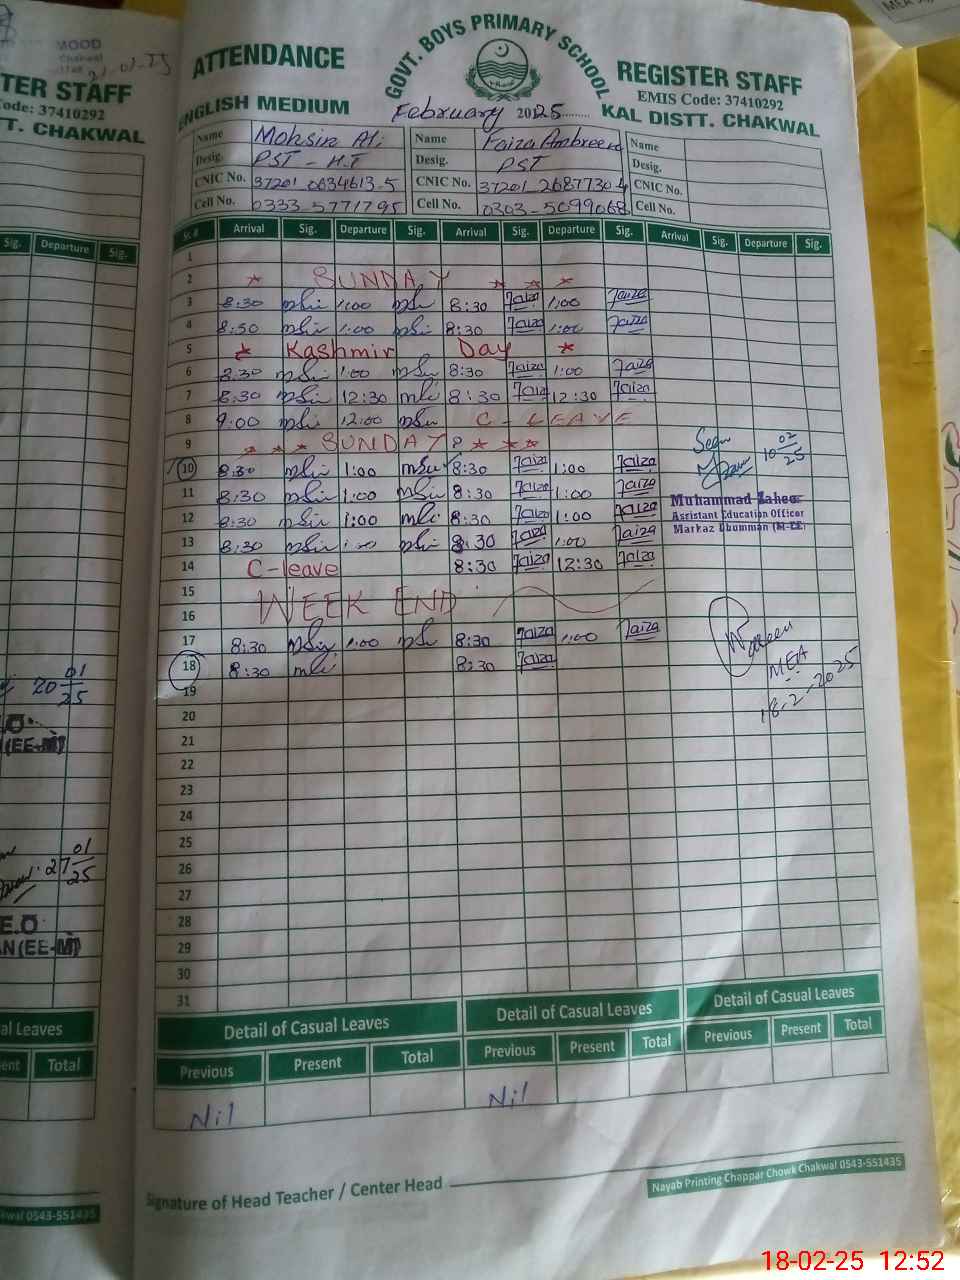 MOOD
Chakwal
TER STAFF
Code: 37410292
TT. CHAKWAL
Sig. Departure Sig.
20 01/25
(EE-M)
27 01/25
E.O
AN (EE-M)
al Leaves
ent Total
kwal 0543-551435
ATTENDANCE
GOVT. BOYS PRIMARY SCHOOL
REGISTER STAFF
EMIS Code: 37410292
ENGLISH MEDIUM
February 2025
KAL DISTT. CHAKWAL
Name Mohsin Ali Name Faiza Ambreen Name
Desig. PST - H.T Desig. PST Desig.
CNIC No. 37201_0634613-5 CNIC No. 37201_2687730-4 CNIC No.
Cell No. 0333-5771795 Cell No. 0303-5099068 Cell No.
Sr.# Arrival Sig. Departure Sig. Arrival Sig. Departure Sig. Arrival Sig. Departure Sig.
1
2 SUNDAY
3 8:30 1:00 8:30 Faiza 1:00 Faiza
4 8:30 1:00 8:30 Faiza 1:00 Faiza
5 Kashmir Day
6 8:30 1:00 8:30 Faiza 1:00 Faiza
7 8:30 12:30 8:30 Faiza 12:30 Faiza
8 9:00 12:00 C-LEAVE
9 SUNDAY
10 8:30 1:00 8:30 Faiza 1:00 Faiza
Seen 10 02/25
11 8:30 1:00 8:30 Faiza 1:00 Faiza
Muhammad Zaheer
Assistant Education Officer
Markaz Dhumman (M-EE)
12 8:30 1:00 8:30 Faiza 1:00 Faiza
13 8:30 1:00 8:30 Faiza 1:00 Faiza
14 C-leave 8:30 Faiza 12:30 Faiza
15
16 WEEK END
17 8:30 1:00 8:30 Faiza 1:00 Faiza
18 8:30 8:30 Faiza
MEA
18-2-2025
19
20
21
22
23
24
25
26
27
28
29
30
31
Detail of Casual Leaves Detail of Casual Leaves Detail of Casual Leaves
Previous Present Total Previous Present Total Previous Present Total
Nil Nil
Signature of Head Teacher / Center Head
Nayab Printing Chappar Chowk Chakwal 0543-551435
18-02-25 12:52